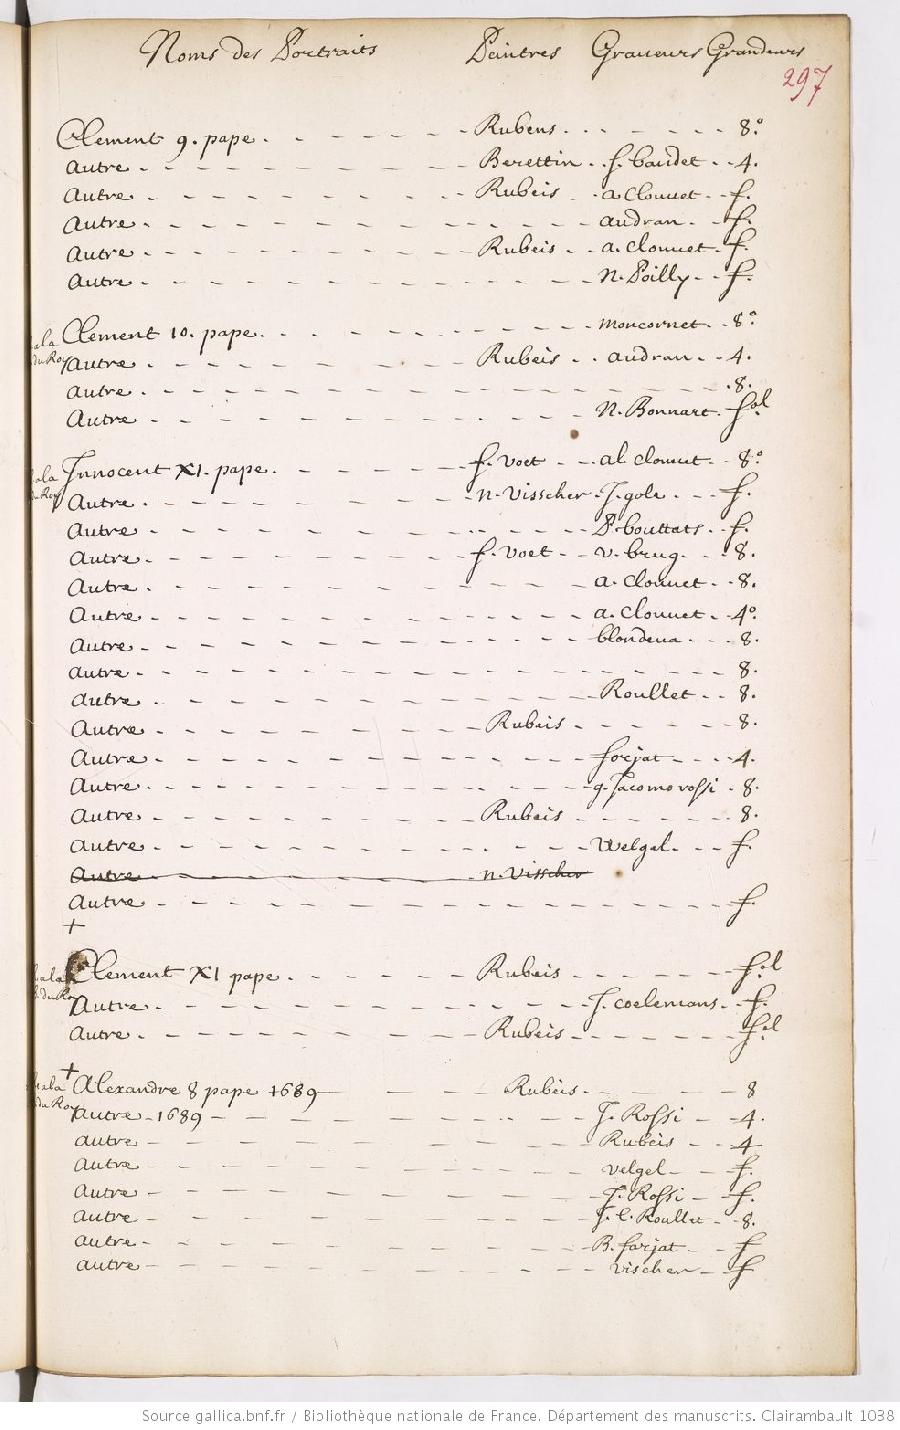 Noms des Portraits Peintres Graueurs Grandeurs
297
Clement 9. pape. Rubens. 8.º
Autre. Berettin. f. baudet. 4.
Autre. Rubeis. a Clouuet. f.
Autre. audran. f.
Autre. Rubeis. a. Clouuet. f.
Autre. N. Poilly. f.
Clement 10. pape. moncornet. 8.º
Autre. Rubeis. audran. 4.
Autre. 8.
Autre. N. Bonnart. fol.
Innocent XI. pape. f. voet al. clouuet. 8.º
Autre. n. Visscher. J. gole. f.
Autre. P. bouttats. f.
Autre. f. voet v. brug. 8.
Autre. a. clouuet. 8.
Autre. a. clouuet. 4º
Autre. blondeua. 8.
Autre. 8.
Autre. Roullet. 8.
Autre. Rubeis. 8.
Autre. forjat. 4.
Autre. g. Jacomo rossi. 8.
Autre. Rubeis. 8.
Autre. Welgel. f.
Autre. n. Visscher
Autre. f.
+
Clement XI pape. Rubeis. fol
Autre. J. coelemans. f.
Autre. Rubeis. fol
+
Alexandre 8 pape 1689 Rubeis. 8
Autre 1689 J. Rossi 4.
autre Rubeis 4
autre velgel f.
autre J. Rossi f.
autre J. l. Roullet 8.
autre B. farjat f
autre vischer f
Source gallica.bnf.fr / Bibliothèque nationale de France. Département des manuscrits. Clairambault 1038